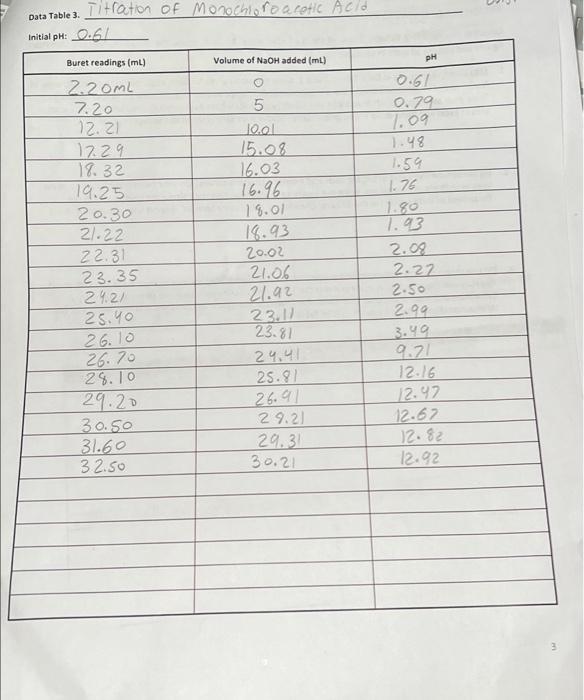 Data Table 3. Titration of Monochloroacetic Acid
Initial pH: 0.61
Buret readings (mL) Volume of NaOH added (mL) pH
2.20mL 0 0.61
7.20 5 0.79
12.21 10.01 1.09
17.29 15.08 1.48
18.32 16.03 1.59
19.25 16.96 1.76
20.30 18.01 1.80
21.22 18.93 1.93
22.31 20.02 2.08
23.35 21.06 2.27
24.21 21.92 2.50
25.40 23.11 2.99
26.10 23.81 3.49
26.70 24.41 9.71
28.10 25.81 12.16
29.20 26.91 12.47
30.50 29.21 12.67
31.60 29.31 12.82
32.50 30.21 12.92
3